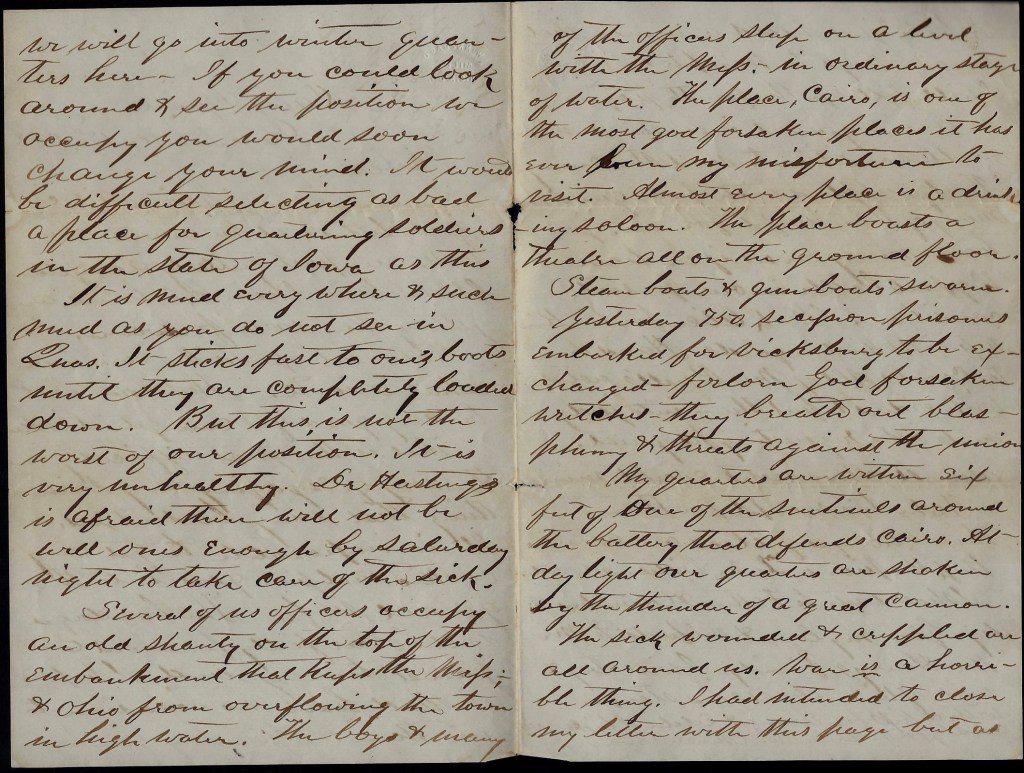 we will go into winter quar-
ters here - If you could look
around & see the position we
occupy you would soon
change your mind. It would
be difficult selecting as bad
a place for quartering soldiers
in the state of Iowa as this
It is mud every where & such
mud as you do not see in
It sticks fast to one's boots
until they are completely loaded
down. But this, is not the
worst of our position. It is
very unhealthy. Dr Hastings
is afraid there will not be
well ones enough by saturday
night to take care of the sick.
Several of us officers occupy
an old shanty on the top of the
embankment that keeps the Miss;
& Ohio from overflowing the town
in high water. The boys & many
of the officers sleep on a level
with the Miss.- in ordinary stage
of water. The place, Cairo, is one of
the most god forsaken places it has
ever been my misfortune to
visit. Almost every place is a drink-
-ing saloon. The place boasts a
theatre all on the ground floor.
Steam boats & gun boats swarm.
Yesterday 750. secession prisoners
embarked for vicksburg to be ex-
changed - forlorn God forsaken
wretches they breath out blas-
phemy & threats against the union
My quarters are within six
feet of one of the sentinels around
the battery that defends Cairo. At-
day light our quarters are shaken
by the thunder of a great cannon.
The sick wounded & crippled are
all around us. War is a horri-
ble thing. I had intended to close
my letter with this page but as